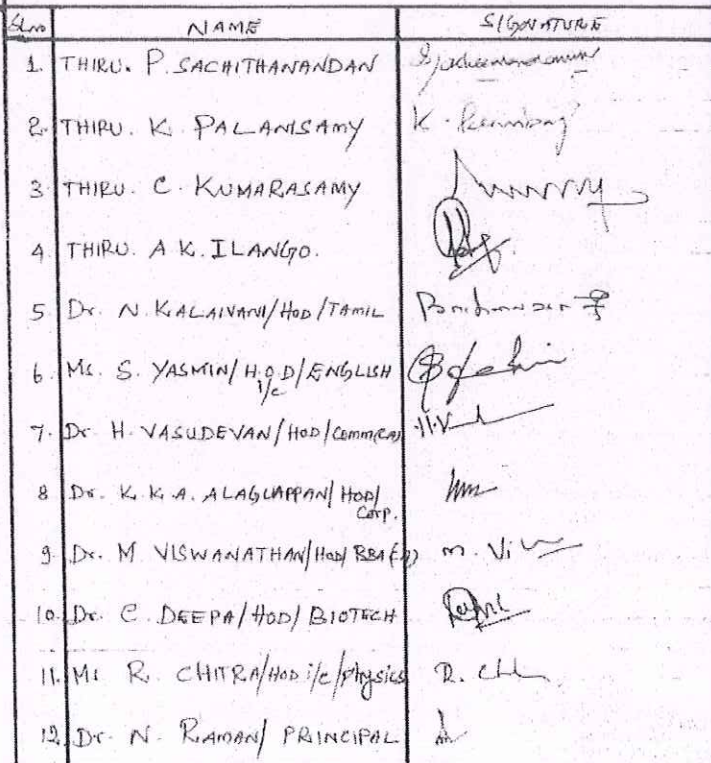 Sl.no NAME SIGNATURE
1. THIRU. P. SACHITHANANDAN
2. THIRU. K. PALANISAMY K.
3 THIRU. C. KUMARASAMY
4 THIRU. A.K. ILANGO.
5 Dr. N. KALAIVANI/HOD/TAMIL
6. Ms. S. YASMIN/H.O.D/ENGLISH
i/c
7. Dr. H. VASUDEVAN/HOD/Comm(CA) H.V
8 Dr. K. K. A. ALAGUAPPAN/HOD/
Corp.
9. Dr. M VISWANATHAN/HOD/BBA m. Vi
10. Dr. C. DEEPA/HOD/BIOTECH
11. Ms R. CHITRA/HOD i/c/Physics R.
12. Dr. N. RAMAN/ PRINCIPAL